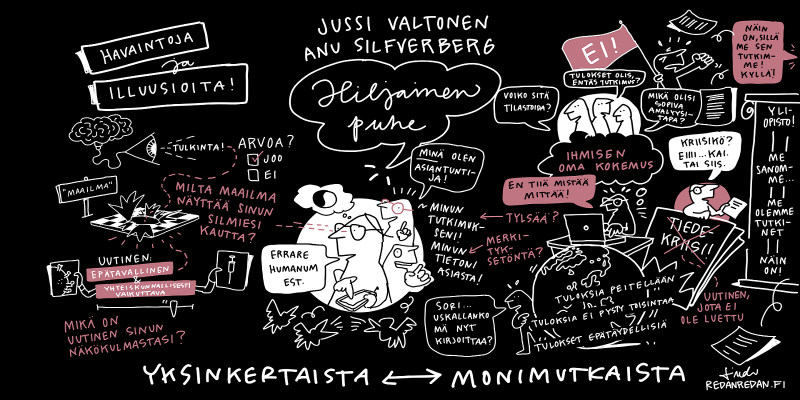 HAVAINTOJA
ja
ILLUUSIOITA!
JUSSI VALTONEN
ANU SILFVERBERG
Hiljainen
puhe
TULKINTA!
ARVOA?
JOO
EI
"MAAILMA"
MILTA MAAILMA
NÄYTTÄÄ SINUN
SILMIESI
KAUTTA?
UUTINEN:
EPÄTAVALLINEN
&
YHTEISKUNNALLISESTI
VAIKUTTAVA
MIKÄ ON
UUTINEN SINUN
NÄKÖKULMASTASI?
MINÄ OLEN
ASIANTUNTI-
JA!
~ MINUN
TUTKIMUK-
SENI!
MINUN
TIETONI
ASIASTA!
ERRARE
HUMANUM
EST.
TYLSÄÄ?
MERKI-
TYK-
SETÖNTÄ?
EI!
TULOKSET OLIS,
ENTÄS TUTKIMUS?
VOIKO SITÄ
TILASTOIDA?
MIKÄ OLISI
SOPIVA
ANALYYSI-
TAPA?
NÄIN
ON, SILLÄ
ME SEN
TUTKIM-
ME!
KYLLÄ!
IHMISEN
OMA KOKEMUS
EN TIIÄ MISTÄÄ
MITTÄÄ!
KRIISIKÖ?
EIIII...KAI.
TAI SIIS.
TIEDE-
KRIISI!
YLI-
OPISTO!
ME
SANOM-
ME...
ME
OLEMME
TUTKI-
NET
NÄIN
ON!
SORI...
USKALLANKO
MÄ NYT
KIRJOITTAA?
TULOKSIA PEITELLÄÄN
TULOKSIA EI PYSTY TOISINTAA
TULOKSET EPÄTÄYDELLISIÄ
UUTINEN,
JOTA EI
OLE LUETTU
YKSINKERTAISTA ↔ MONIMUTKAISTA
REDANREDAN.FI